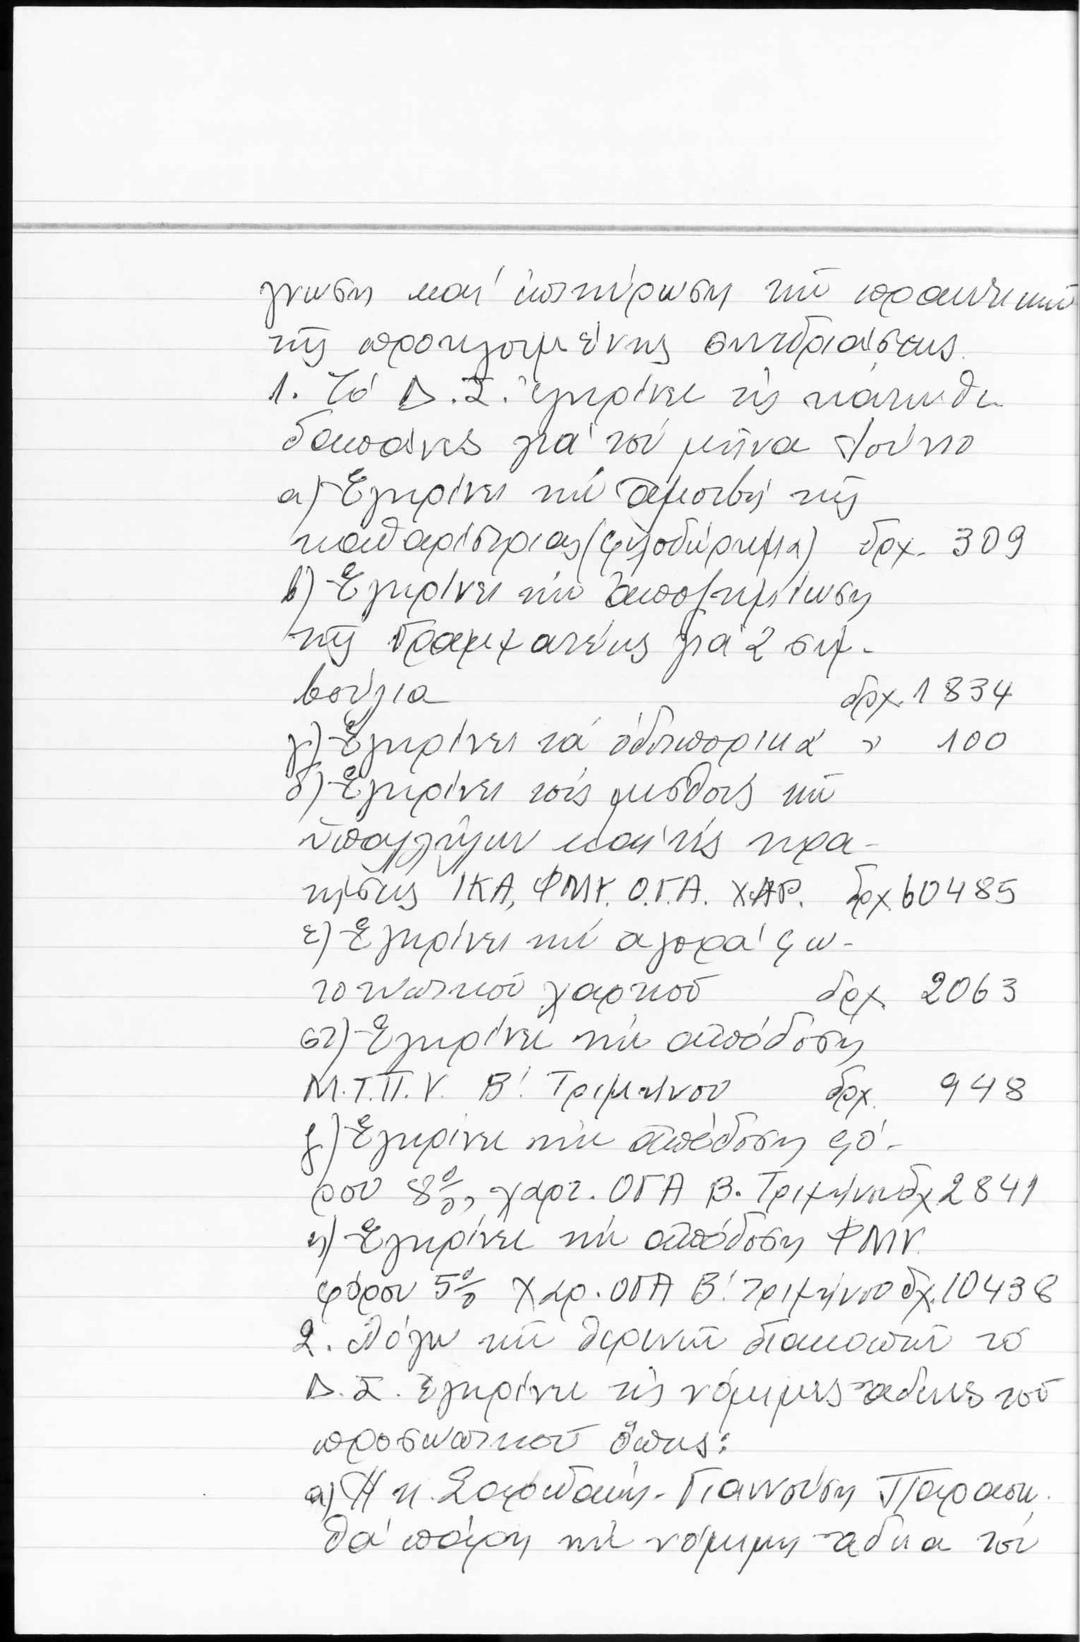 γνωση καί ἐπικύρωση τῶν πρακτικῶν
τῆς προηγουμένης συνεδριάσεως.
1. Τό Δ.Σ. ἐγκρίνει τίς κάτωθι
δαπάνες γιά τόν μῆνα Ἰούνιο
α) Ἐγκρίνει τήν ἀμοιβή τῆς
καθαρίστριας (φιλοδώρημα) δρχ. 309
β) Ἐγκρίνει τήν ἀποζημίωση
τῆς Γραμματέως γιά 2 συμ-
βούλια δρχ. 1834
γ) Ἐγκρίνει τά ὁδοιπορικά " 100
δ) Ἐγκρίνει τούς μισθούς τῶν
ὑπαλλήλων καί τίς κρα-
τήσεις ΙΚΑ, ΦΜΥ. Ο.Γ.Α. ΧΑΡ. δρχ. 60485
ε) Ἐγκρίνει τήν ἀγορά φω-
τοτυπικοῦ χαρτιοῦ δρχ. 2063
στ) Ἐγκρίνει τήν ἀπόδοση
Μ.Τ.Π.Υ. Β΄. Τριμήνου δρχ. 948
ζ) Ἐγκρίνει τήν ἀπόδοση φό-
ρου 8%, χαρτ. ΟΓΑ Β. Τριμήνου δχ 2841
η) Ἐγκρίνει τήν ἀπόδοση ΦΜΥ.
φόρου 5% Χαρ. ΟΓΑ Β΄. τριμήνου δχ. 10438
2. Λόγω τῶν θερινῶν διακοπῶν τό
Δ.Σ. ἐγκρίνει τίς νόμιμες ἄδειες τοῦ
προσωπικοῦ ὅπως:
α) Ἡ κ. Γιαννούση Παρασκ.
θά πάρη τήν νόμιμη ἄδεια τόν